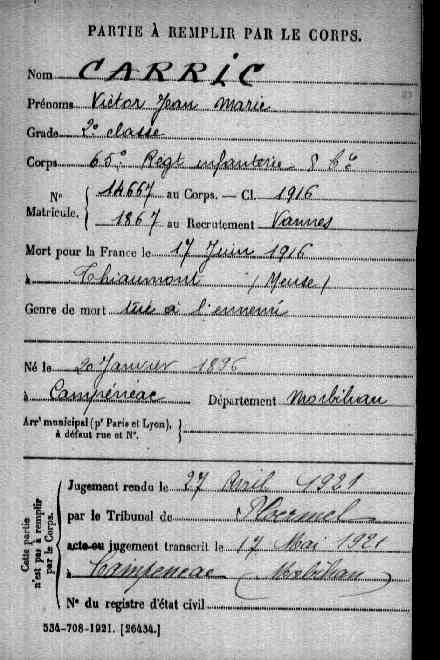 PARTIE À REMPLIR PAR LE CORPS.
Nom CARRIC
Prénoms Victor Jean Marie
Grade 2e classe
Corps 65e Régt infanterie 8 Cie
No Matricule. 14667 au Corps. — Cl. 1916
1867 au Recrutement Vannes
Mort pour la France le 17 Juin 1916
à Thiaumont (Meuse)
Genre de mort tué à l'ennemi
Né le 20 Janvier 1896
à Campénéac Département Morbihan
Arrt municipal (pr Paris et Lyon),
à défaut rue et No.
Cette partie
n'est pas à remplir
par le Corps.
Jugement rendu le 27 Avril 1921
par le Tribunal de Ploermel
acte ou jugement transcrit le 17 Mai 1921
à Campeneac (Morbihan)
No du registre d'état civil
534-708-1921. [26434.]